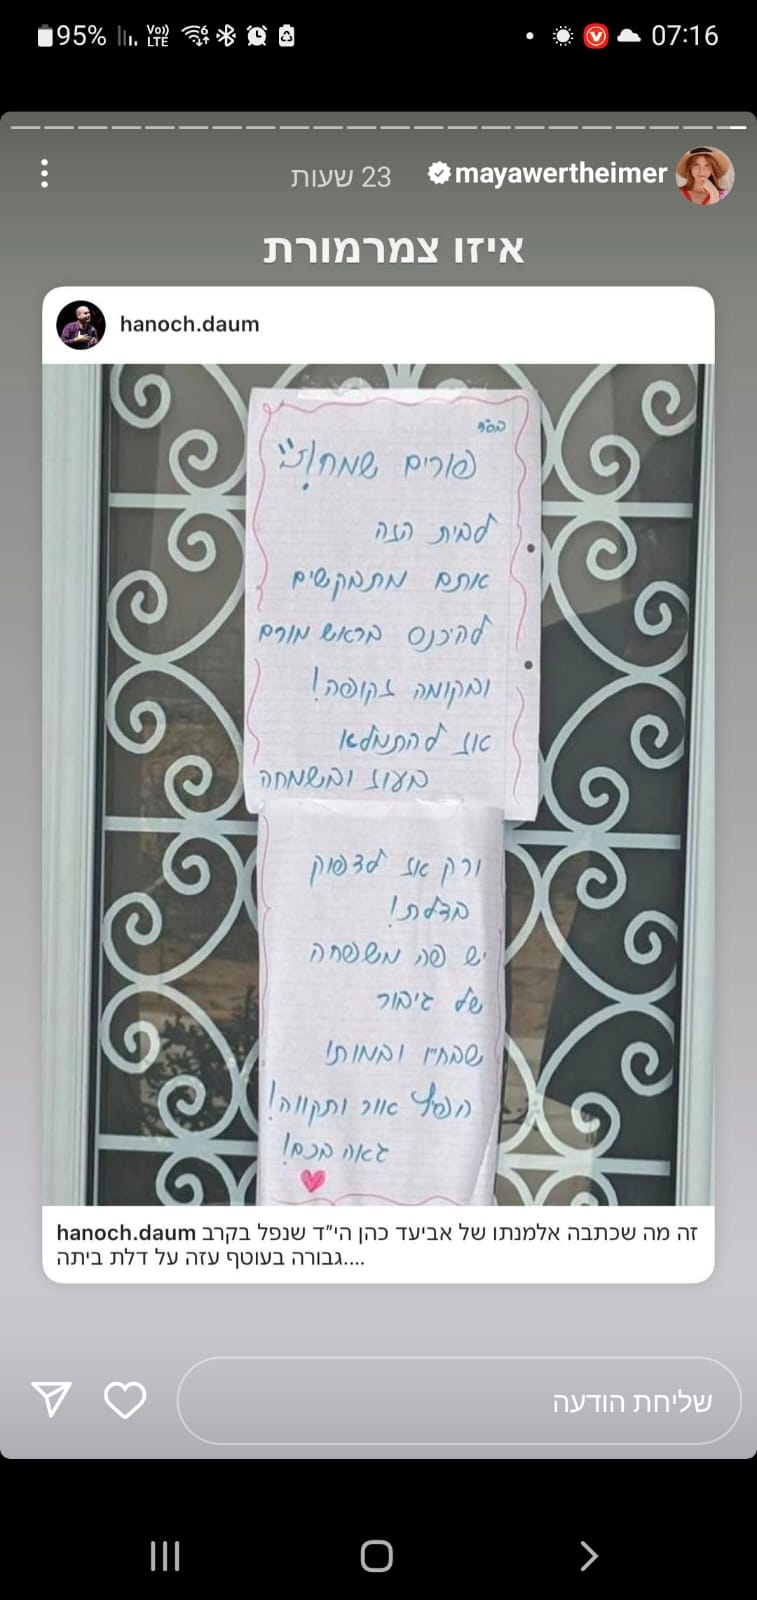 95% Vo)) LTE 6 07:16
mayawertheimer 23 שעות
איזו צמרמורת
hanoch.daum
בס"ד
פורים שמח!
לבית הזה
אתם מתבקשים
להיכנס בראש מורם
ובקומה זקופה!
אז להתמלא
בעוז ובשמחה
ורק אז לדפוק
בדלת!
יש פה משפחה
של גיבור
שבחייו ובמותו
הפיץ אור ותקווה!
גאה בכם!
hanoch.daum זה מה שכתבה אלמנתו של אביעד כהן הי״ד שנפל בקרב
גבורה בעוטף עזה על דלת ביתה....
שליחת הודעה